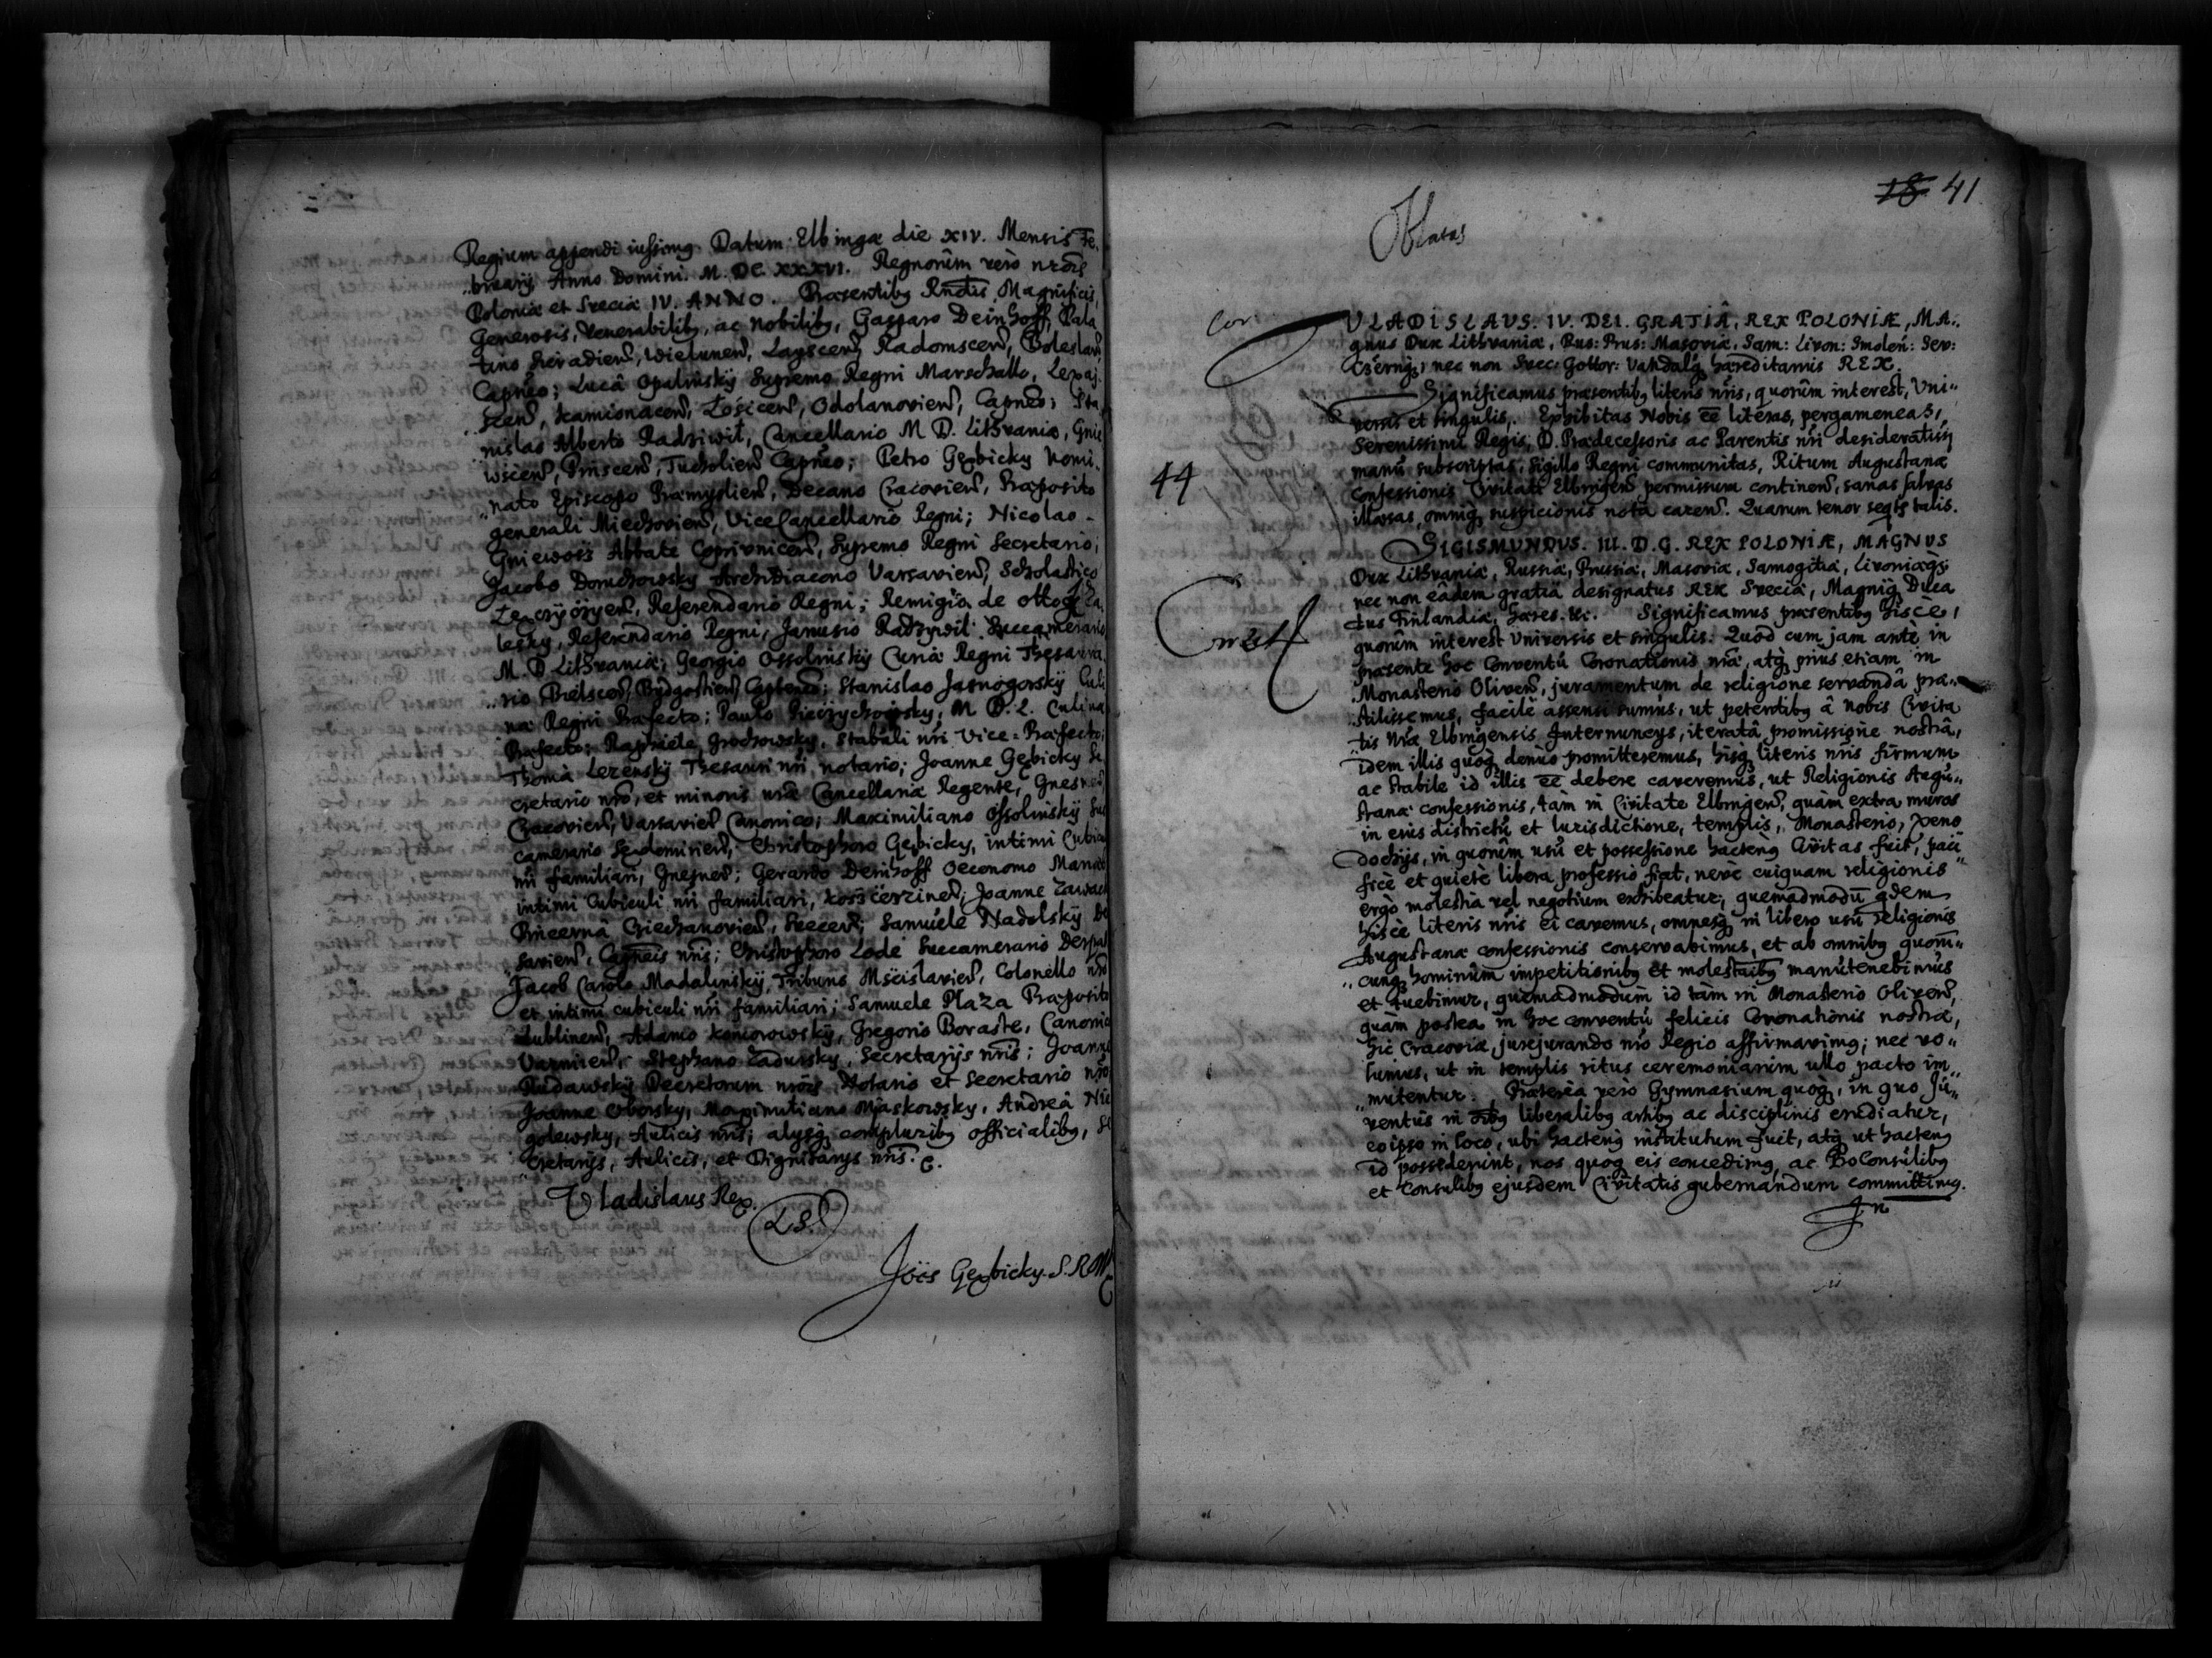 Regium appendi iussimq. Datum Elbingæ die XIV. Mensis Fe„
„bruarij Anno Domini. M. DC. XXXVI. Regnorum vero nrōrū
Poloniæ et Sveciæ IV. ANNO. Præsentibq Rndīs, Magnificis,
Generosis, Venerabilibq, ac Nobilibq, Gasparo Deinhoff, Pala
tino Siradien, Wielunen, Layscen, Radomscen, Boleslav
Capneo; Lucâ Opalinsky Supremo Regni Marschallo, Lexaj.
scen, Kamionacen, Łosicen, Odolanovien, Capneo; Sta
nislao Alberto Radziwił, Cancellario M. D. Lithvaniæ, Gnie
wscen, Pinscen, Tucholien Capneo; Petro Gębicky Nomi„
„nato Episcopo Præmyslien, Decano Cracovien, Præposito
generali Miechovien, ViceCancellario Regni; Nicolao
Gniewosz Abbate Coprivnicen, Supremo Regni Secretario;
Jacobo Domchowsky Archidiacono Varsavien, Scholastico
Lencÿcÿen, Referendario Regni; Remigiō de Ottok Za
lesky, Referendario Regni, Janusio Radziwil Succamerario
M. D. Lithvaniæ; Georgio Ossolinsky Curiæ Regni Thesaura
rio Bielscen, Bÿdgostien, Capteneo; Stanislao Jasnogorsky Culi
næ Regni Præfecto; Paulo M. D. L. Culinæ
Præfecto; Raphaele Grochowsky, Stabuli nri Vice-Præfecto;
Thoma Lezensky Thesauri nri notario; Joanne Gębicky Se
cretario nrō, et minoris nræ Cancellariæ Regente, Gnesnen,
Cracovien, Varsavien Canonico; Maximiliano Ossolinsky Suc
camerario Sendomirien, Christophoro Gębicky, intimi Cubicu
nri familiari, Gnesnen; Gerardo Denhoff Oeconomo Marien
intimi Cubiculi nri familiari, Kosscerzinen; Joanne Zawadz
Pincerna Ciechanovien, Svecen; Samuele Nadolsky De
savien, Capneis nris; Christophoro Lode Succamerario Derpat
Jacob Carolo Madalinskÿ, Tribuno Mscislavien, Colonello nrō
et intimi cubiculi nri familiari; Samuele Plaza Præposito
Lublinen, Adamo Komorowsky, Gregorio Boraste, Canonic
Varmien, Stephano Zadursky, Secretarijs nris; Joanne
Rudawsky Decretorum nrōrū Notario et Secretario nrō
Joanne Oborsky, Maximiliano Mjaskowsky, Andreâ Nie
golewsky, Aulicis nris; alijsq compluribq officialibq, Se
cretarijs, Aulicis, et Dignitarijs nris. &.
Vladislaus Rex.
L.S.
Joēs Gębicky. S. R. M
18 41
Oblatas
Cor.
VLADISLAVS. IV. DEI. GRATIÂ, REX POLONIÆ, MA„
gnus Dux Lithvaniæ, Rus: Prus: Masoviæ, Sam: Livon: Smolen: Sev:
Czernq, nec non Svec: Gottor: Vandalq hæreditarius REX.
Significamus præsentibq literis nris, quorum interest, Uni„
versis et singulis. Exhibitas Nobis ee literas, pergameneas,
Serenissimi Regis, D. Prædecessoris ac Parentis nri desideratissi
44
manu subscriptas, sigillo Regni communitas, Ritum Augustanæ
Confessionis Civitati Elbingen permissum continen, sanas salvas
illæsas, omniq suspicionis nota caren. Quarum tenor seqr talis.
SIGISMVNDVS. III. D. G. REX POLONIÆ, MAGNVS
Dux Lithvaniæ, Russiæ, Prussiæ, Masoviæ, Samogitiæ, Livoniæq;
nec non eâdem gratiâ designatus REX Sveciæ, Magniq Duca
tus Finlandiæ, hæres. &c. Significamus præsentibq hisce,
Correct
quorum interest Universis et singulis: Quod cum jam ante in
præsente hoc Conventu Coronationis nræ, atq prius etiam in
Monasterio Oliven, juramentum de religione servandâ præ„
„stitissemus, facile assensi sumus, ut petentibq â nobis Civita
tis nræ Elbingensis Internuncijs, iteratâ promissione nostrâ,
idem illis quoq denuo promitteremus, hisq literis nris firmum
ac stabile id illis ee debere caveremus, ut Religionis Augu„
stanæ confessionis, tam in Civitate Elbingen, quàm extra muros
in eius districtu et Iurisdictione, templis, Monasterio, xeno
dochijs, in quorum usu et possessione hactenq Civitas fuit, paci
fice et quiete libera professio fiat, neve cuiquam religionis
ergo molestia vel negotium exhibeatur, quemadmodū qdem
hisce literis nris ei cavemus, omnesq in libero usu religionis
Augustanæ confessionis conservabimus, et ab omnibq quorū„
„cunq hominum impetitionibq et molestaibq manutenebimus
et tuebimur, quemadmodum id tam in Monasterio Oliven,
quàm postea in hoc conventu felicis Coronationis nostræ,
hic Cracoviæ, jurejurando nro Regio affirmavimq; nec vo„
lumus, ut in templis ritus ceremoniarum ullo pacto im„
„mutentur. Præterea vero Gymnasium quoq, in quo Ju„
ventus in oībq liberalibq artibq ac disciplinis erudiatur,
eo ipso in loco, ubi hactenq institutum fuit, atq ut hactenq
id possederunt, nos quoq eis concedimq, ac ProConsulibq
et Consulibq ejusdem Civitatis gubernandum committimq.
In